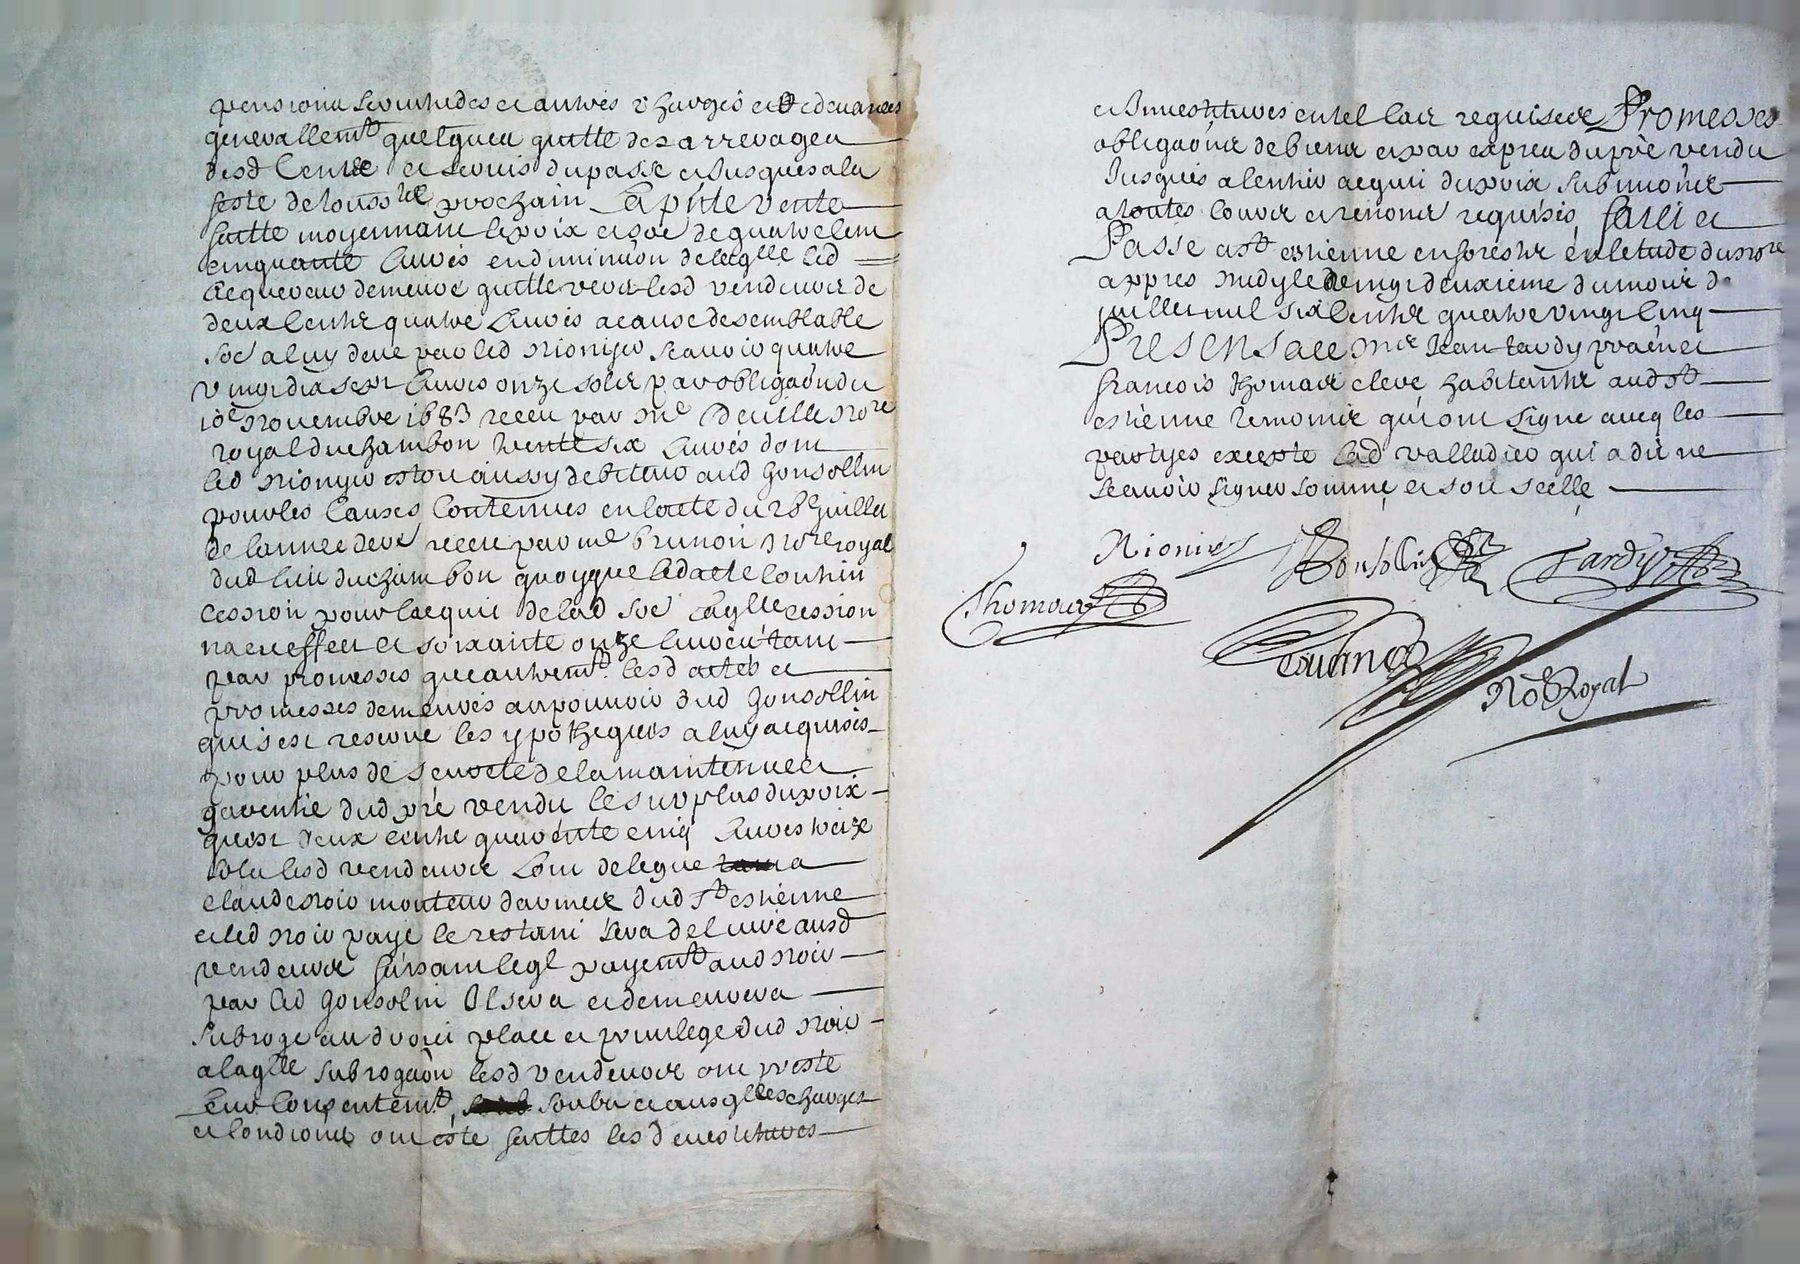 pensions servitudes et autres charges et redevances
generallemt quelques quitte des arrerages
desd Cents et servis du passe et Jusques a la
feste de touss prochain La pnte vente
faitte moyennant le prix et soe de quatre Cent
cinquante livres en diminuon de laqlle led
acquereur demeure quitte vers lesd vendeurs de
deux Cents quatre livres a cause de semblable
soe a luy deue par led Nionyer scavoir quatre
vingt dix sept livres onze sols par obligaon du
10e Novembre 1683 receu par me Deville Nore
royal du chambon trente six livres dont
led Nionyer estoit aussy debiteur aud Gonsollin
pour les Causes Contenues en l'acte du 28e Juillet
de lannee dere receu par me brunon Nore royal
dud lieu du chambon quoyque led acte Contint
cession pour lacquit de lad soe laqlle cession
na eu effect et soixante onze livres tant
par promesses que autremt lesd actes et
promesses demeurés au pouvoir dud Gonsollin
qui s'est reservé les ypotheques a luy acquises
pour plus de seureté de la maintenue et
garentie dud pré vendu le surplus du prix
quest deux cents quarente cinq livres treize
sols lesd vendeurs Lont delegué a
claude Noir monteur darmes dud St estienne
et led Noir payé le restant sera delivré ausd
vendeurs faisant leql payemt aud Noir
par led Gonsolin Il sera et demeurera
subrogé au droit place et privilege dud Noir
a laqlle subrogaon lesd vendeurs ont presté
Leur Consentemt soubz et ausqlles charges
et Condions ont esté faittes les devestitures
et Investitures en tel Cas requises Promesses
obligaons de biens et par exprea du pré vendu
Jusques a lentier acquit du prix submions
a toutes Cours et renons requises fait et
Passé a St estienne en forestz en letude du Nore
appres midy le vingt deuxieme du mois de
juillet mil six Cents quatre vingt Cinq
Presens a ce me Jean tardy praen et
francois thomas cleve habitants aud St
estienne temoins qui ont signé avec les
partyes excepté lad valladier qui a dit ne
Scavoir signer sommé et soit scellé
Nionier Gonsollin Tardy
Thomas
Not Royal